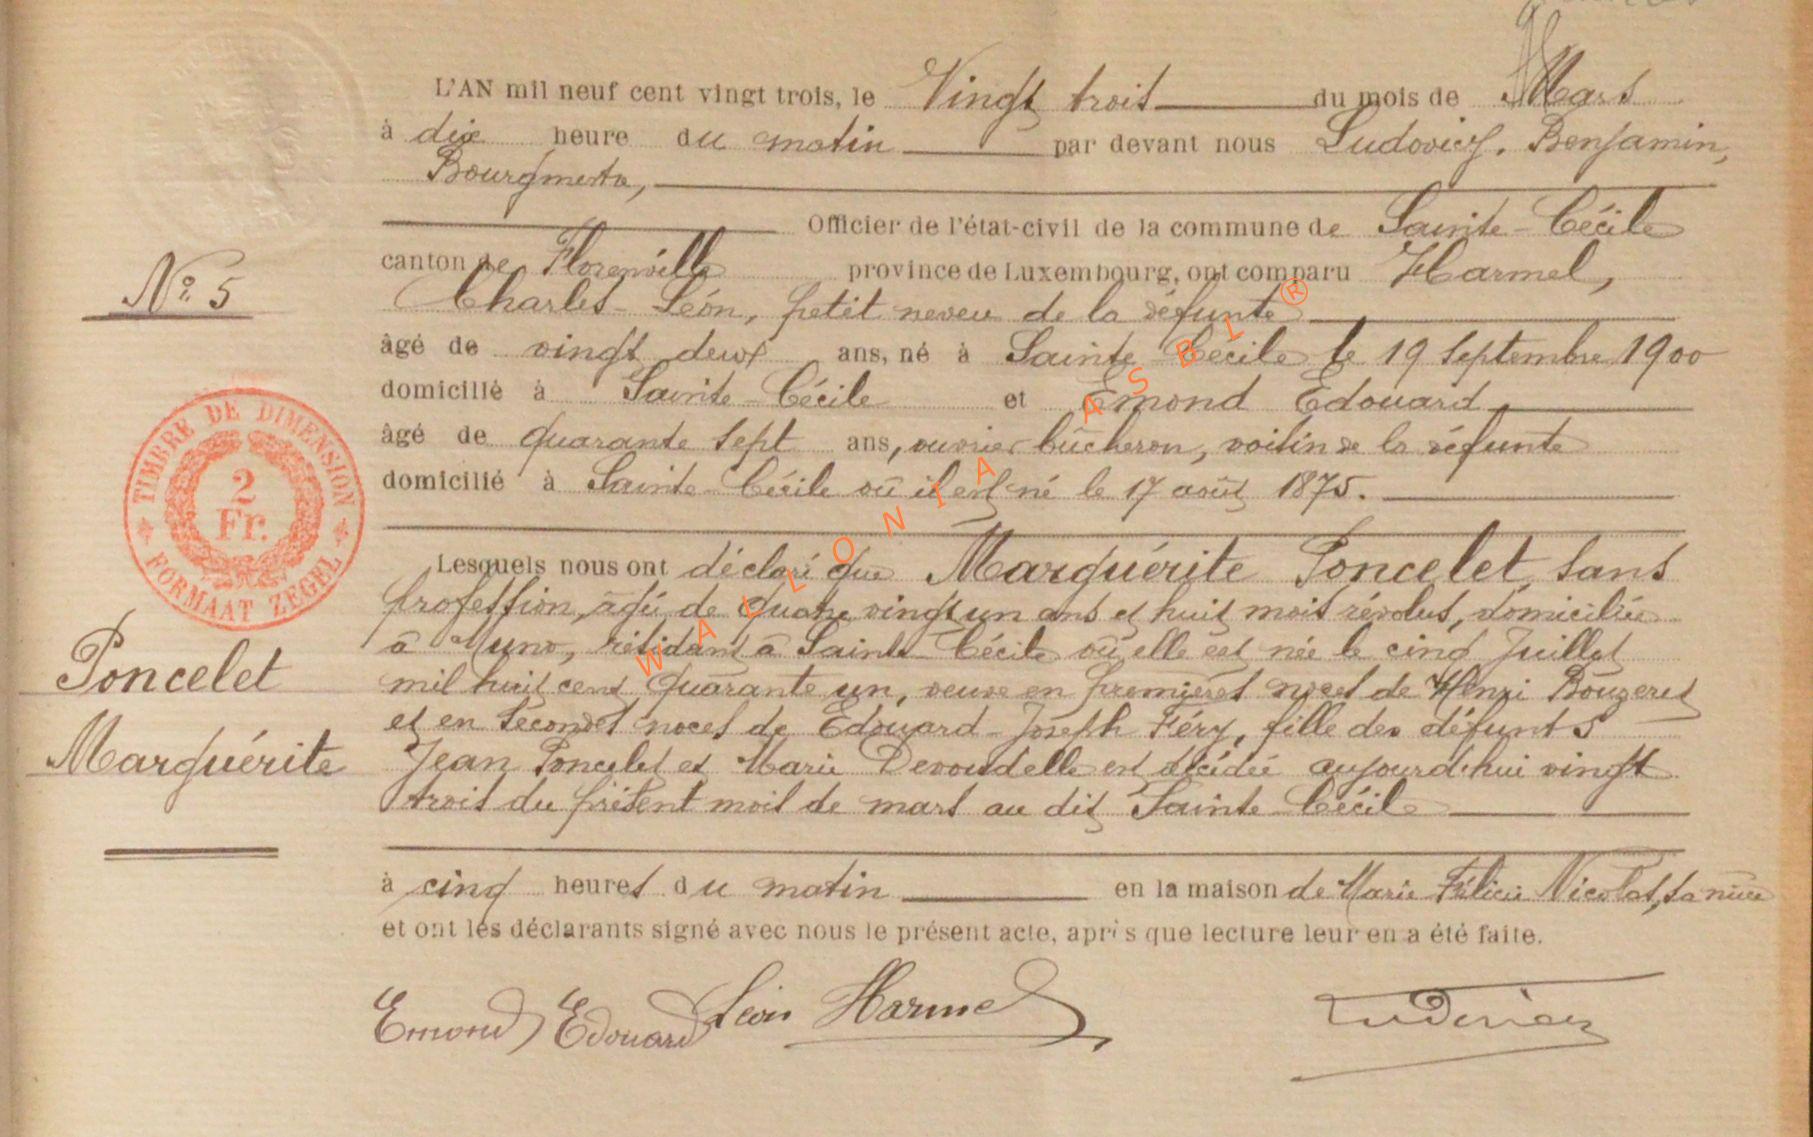 L'AN mil neuf cent vingt trois, le Vingt trois du mois de Mars
à dix heure du matin par devant nous Ludovicy, Benjamin,
Bourgmestre,
Officier de l'état-civil de la commune de Sainte-Cécile
canton de Florenville province de Luxembourg, ont comparu Harmel,
Charles-Léon, petit neveu de la défunte
âgé de vingt deux ans, né à Sainte Cécile le 19 septembre 1900
domicilié à Sainte-Cécile et Emond Edouard
âgé de quarante sept ans, ouvrier bûcheron, voisin de la défunte
domicilié à Sainte-Cécile où il est né le 17 août 1875.
Lesquels nous ont déclaré que Marguérite Poncelet, sans
profession, âgée de quatre vingt un ans et huit mois révolus, domiciliée
à Muno, résidant à Sainte-Cécile où elle est née le cinq Juillet
mil huit cent quarante un, veuve en premières noces de Henri Bouzeret
et en secondes noces de Edouard-Joseph Féry, fille des défunts
Jean Poncelet et Marie Devoudelle est décédée aujourd'hui vingt
trois du présent mois de mars au dit Sainte Cécile
à cinq heures du matin en la maison de Marie Félicie Nicolas, sa nièce
et ont les déclarants signé avec nous le présent acte, après que lecture leur en a été faite.
Emond Edouard Léon Harmel
N° 5
TIMBRE DE DIMENSION
2
Fr.
FORMAAT ZEGEL
Poncelet
Marguérite
WALLONIA ASBL ®